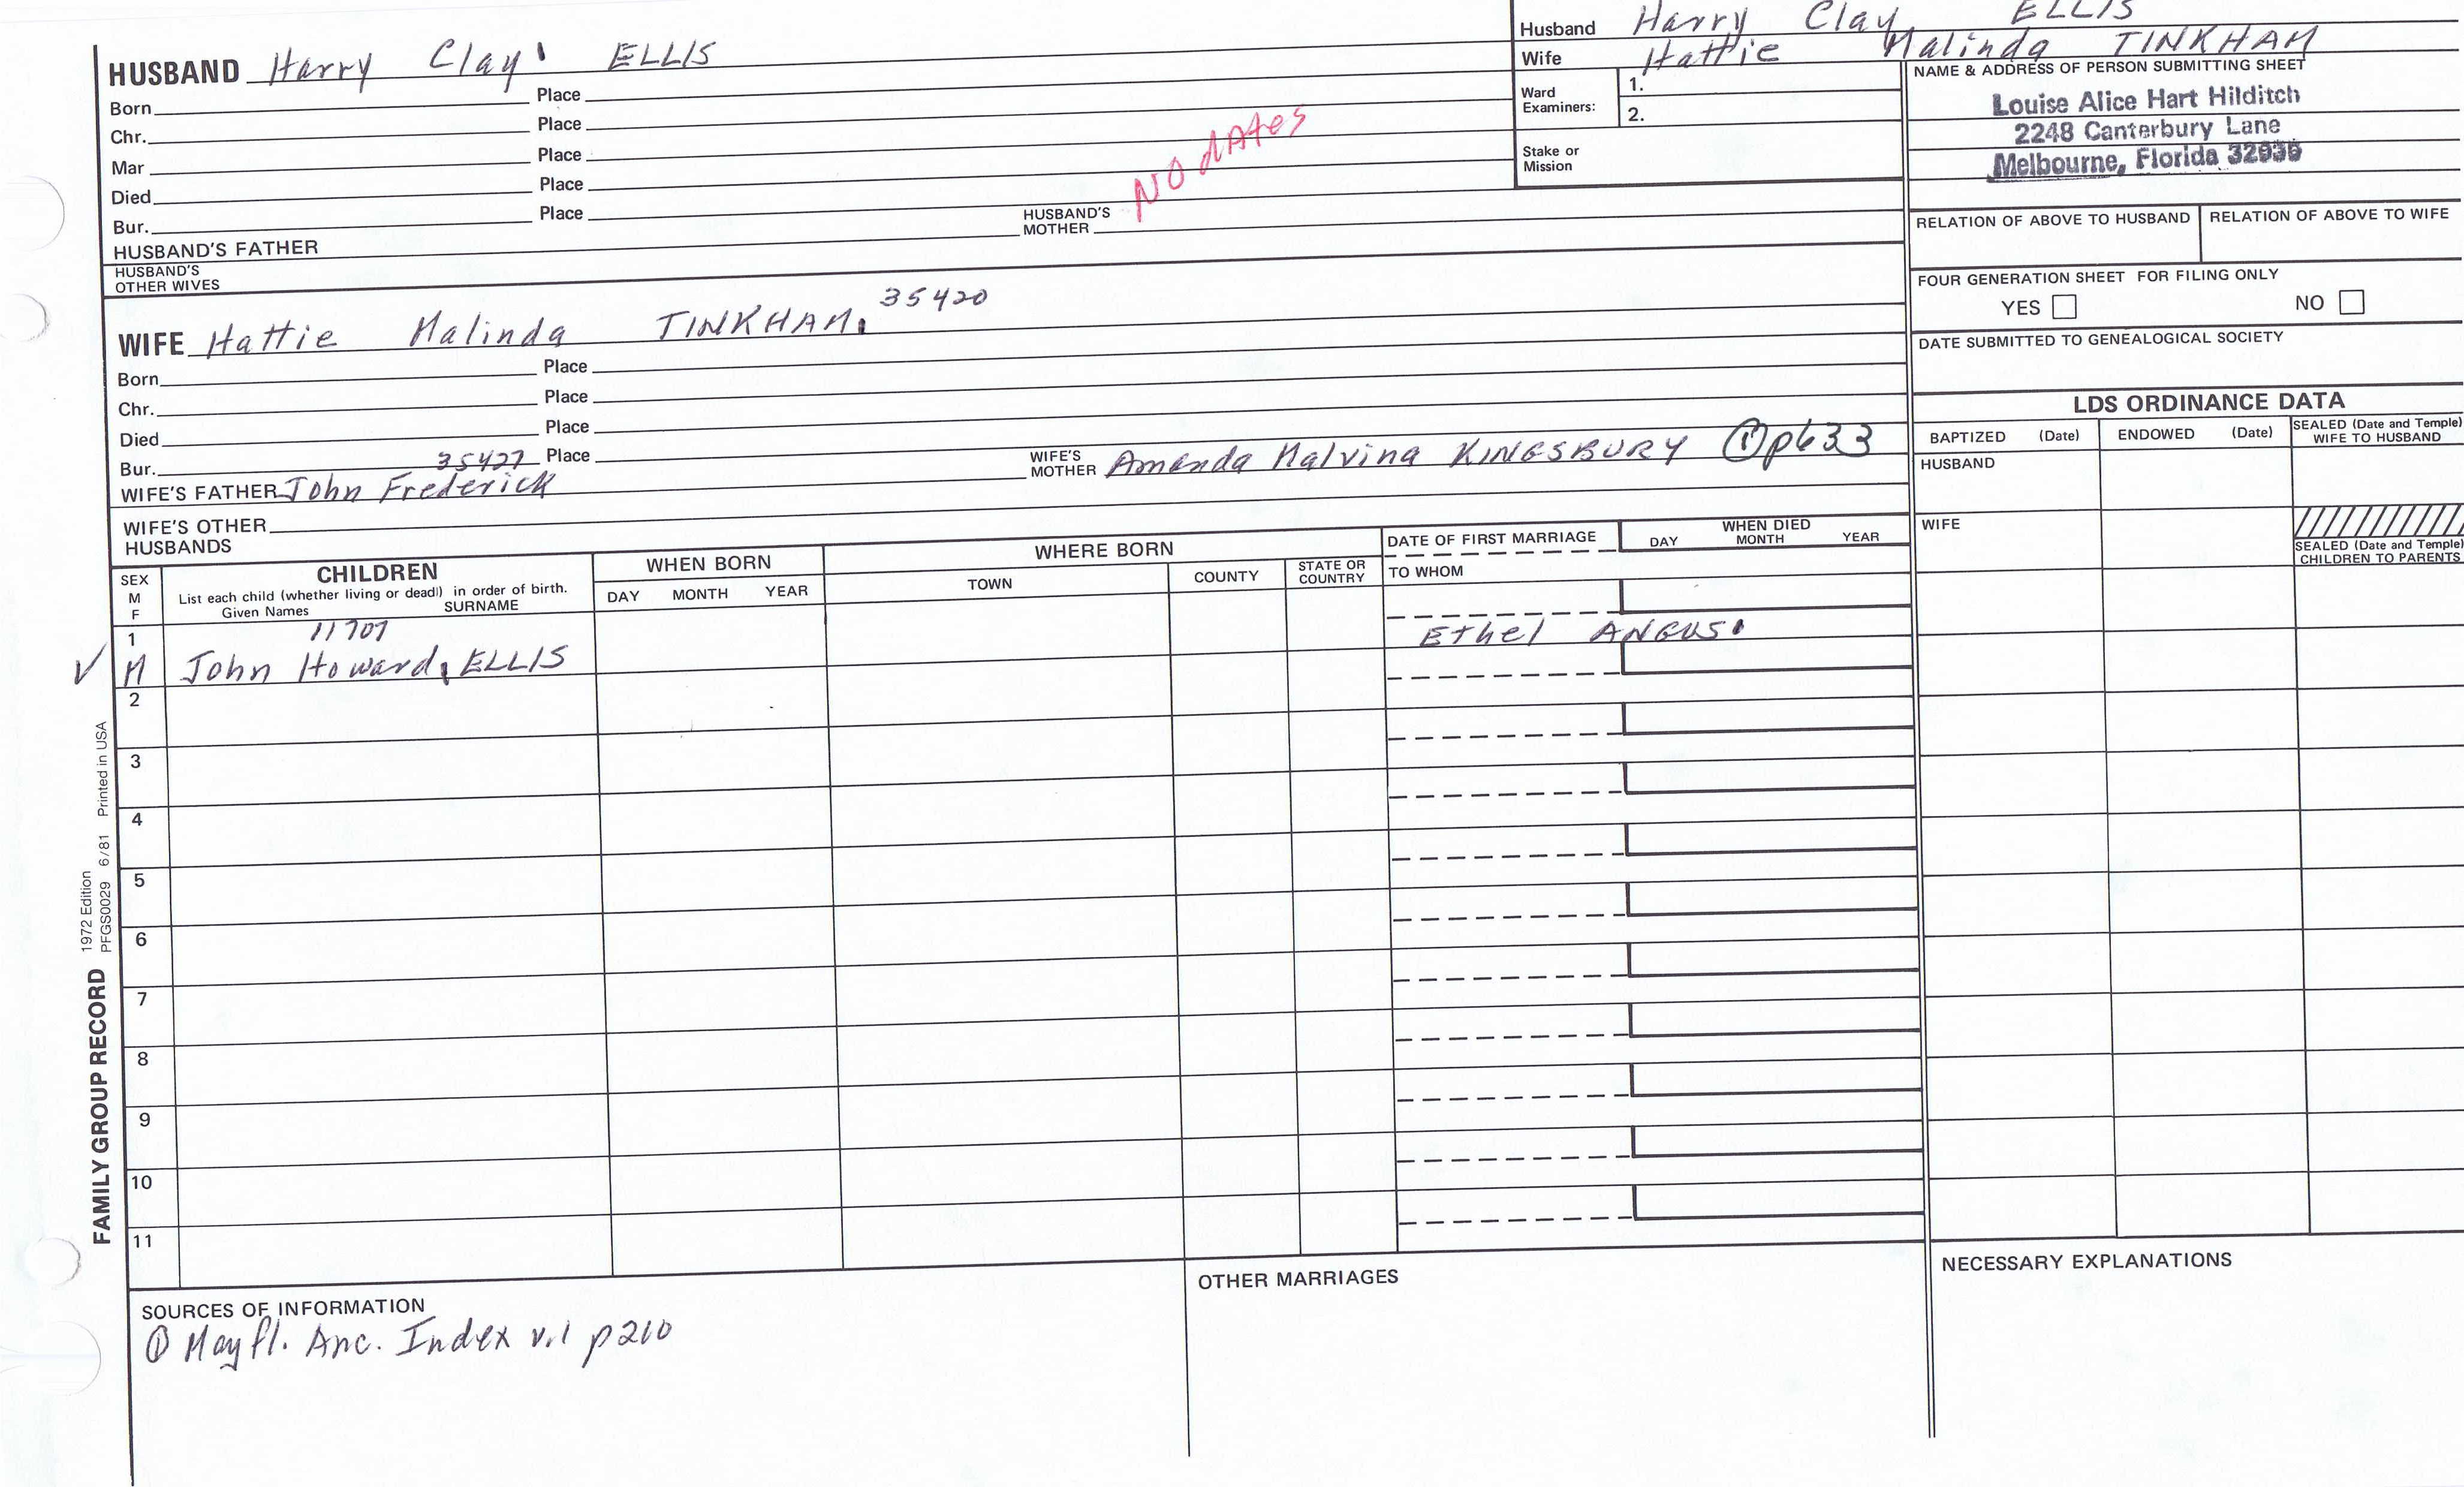 Husband Harry Clay ELLIS
Wife Hattie Malinda TINKHAM
Ward Examiners: 1.
2.
Stake or Mission
NAME & ADDRESS OF PERSON SUBMITTING SHEET
Louise Alice Hart Hilditch
2248 Canterbury Lane
Melbourne, Florida 32935
RELATION OF ABOVE TO HUSBAND RELATION OF ABOVE TO WIFE
FOUR GENERATION SHEET FOR FILING ONLY
YES NO
DATE SUBMITTED TO GENEALOGICAL SOCIETY
HUSBAND Harry Clay ELLIS
Born Place
Chr. Place
Mar Place
Died Place
Bur. Place
NO dAtes
HUSBAND'S FATHER HUSBAND'S MOTHER
HUSBAND'S OTHER WIVES
35420
WIFE Hattie Malinda TINKHAM
Born Place
Chr. Place
Died Place
Bur. Place
35427
WIFE'S FATHER John Frederick WIFE'S MOTHER Amanda Malvina KINGSBURY ① p633
WIFE'S OTHER HUSBANDS
LDS ORDINANCE DATA
BAPTIZED (Date) ENDOWED (Date) SEALED (Date and Temple) WIFE TO HUSBAND
HUSBAND
WIFE
SEALED (Date and Temple) CHILDREN TO PARENTS
SEX M F CHILDREN WHEN BORN WHERE BORN DATE OF FIRST MARRIAGE WHEN DIED
List each child (whether living or dead) in order of birth.
Given Names SURNAME DAY MONTH YEAR TOWN COUNTY STATE OR COUNTRY TO WHOM DAY MONTH YEAR
1 11707
✓ M John Howard ELLIS Ethel ANGUS
2
3
4
5
6
7
8
9
10
11
FAMILY GROUP RECORD 1972 Edition
PFGS0029 6/81 Printed in USA
SOURCES OF INFORMATION
① Mayfl. Anc. Index v.1 p210
OTHER MARRIAGES
NECESSARY EXPLANATIONS